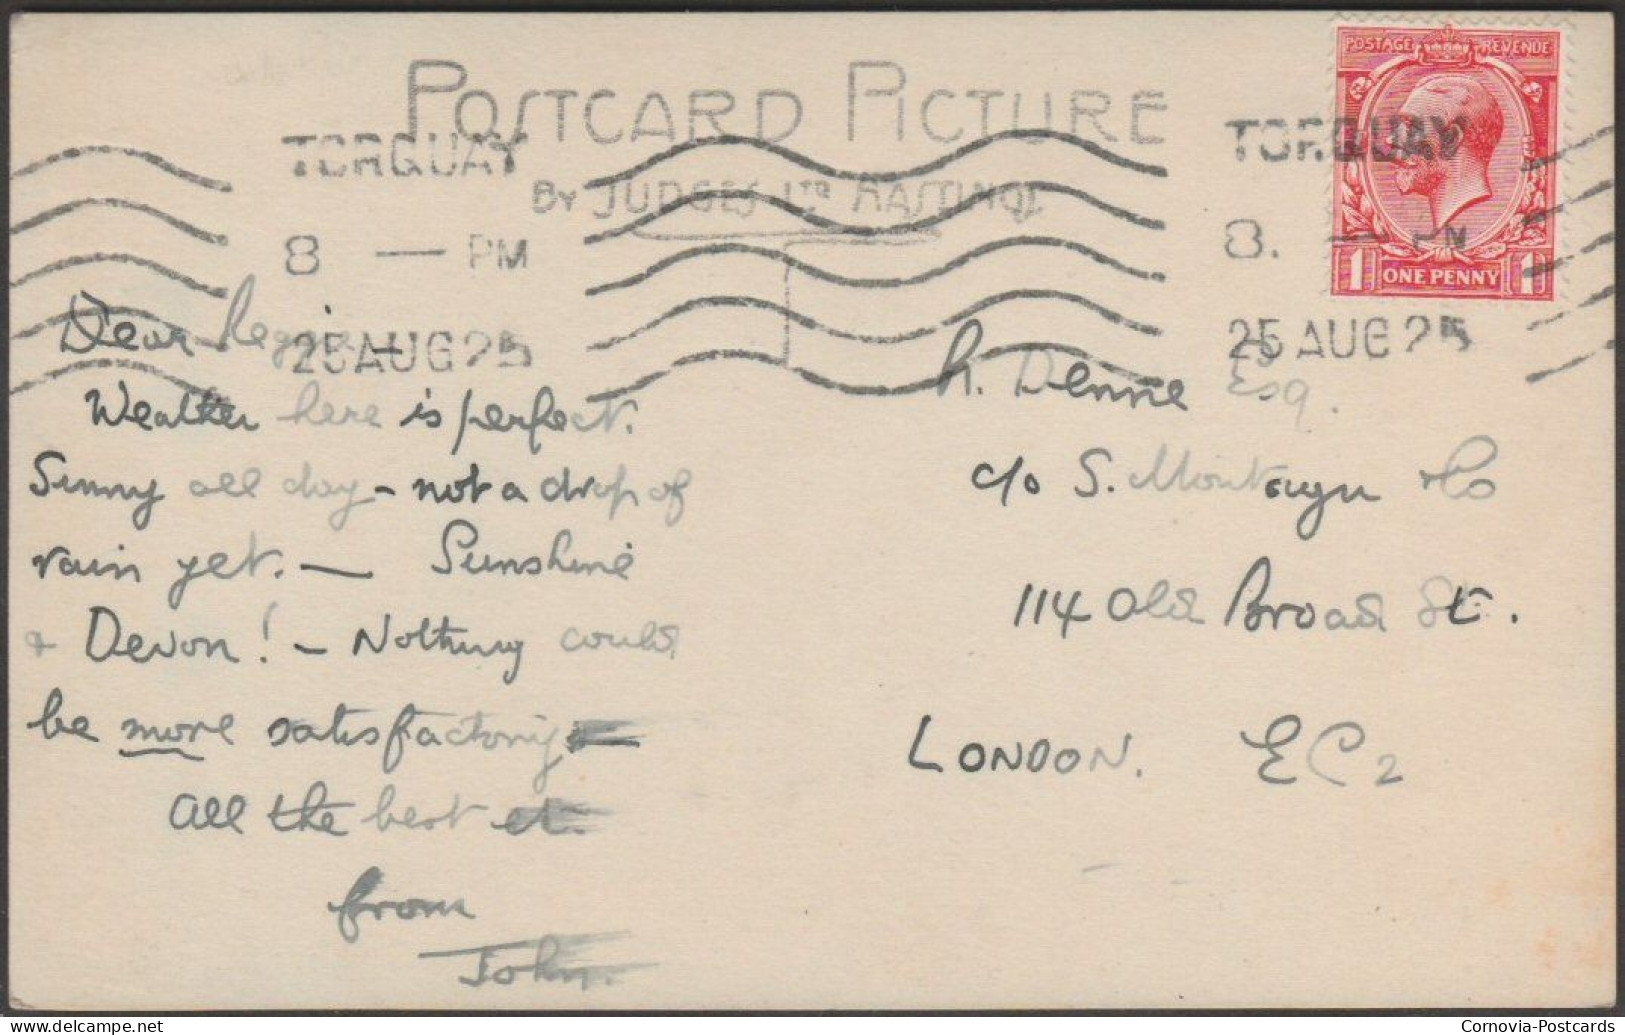 POSTCARD PICTURE
BY JUDGES LTD HASTINGS
TORQUAY
8 — PM
25 AUG 25
TORQUAY
8. — PM
25 AUG 25
POSTAGE REVENUE
1 ONE PENNY 1
Dear Reggie —
Weather here is perfect.
Sunny all day - not a drop of
rain yet. — Sunshine
& Devon! - Nothing could
be more satisfactory —
All the best et.
from
John.
R. Denne Esq.
c/o S. Montagu & Co
114 Old Broad St.
LONDON. EC2
Cornovia-Postcards